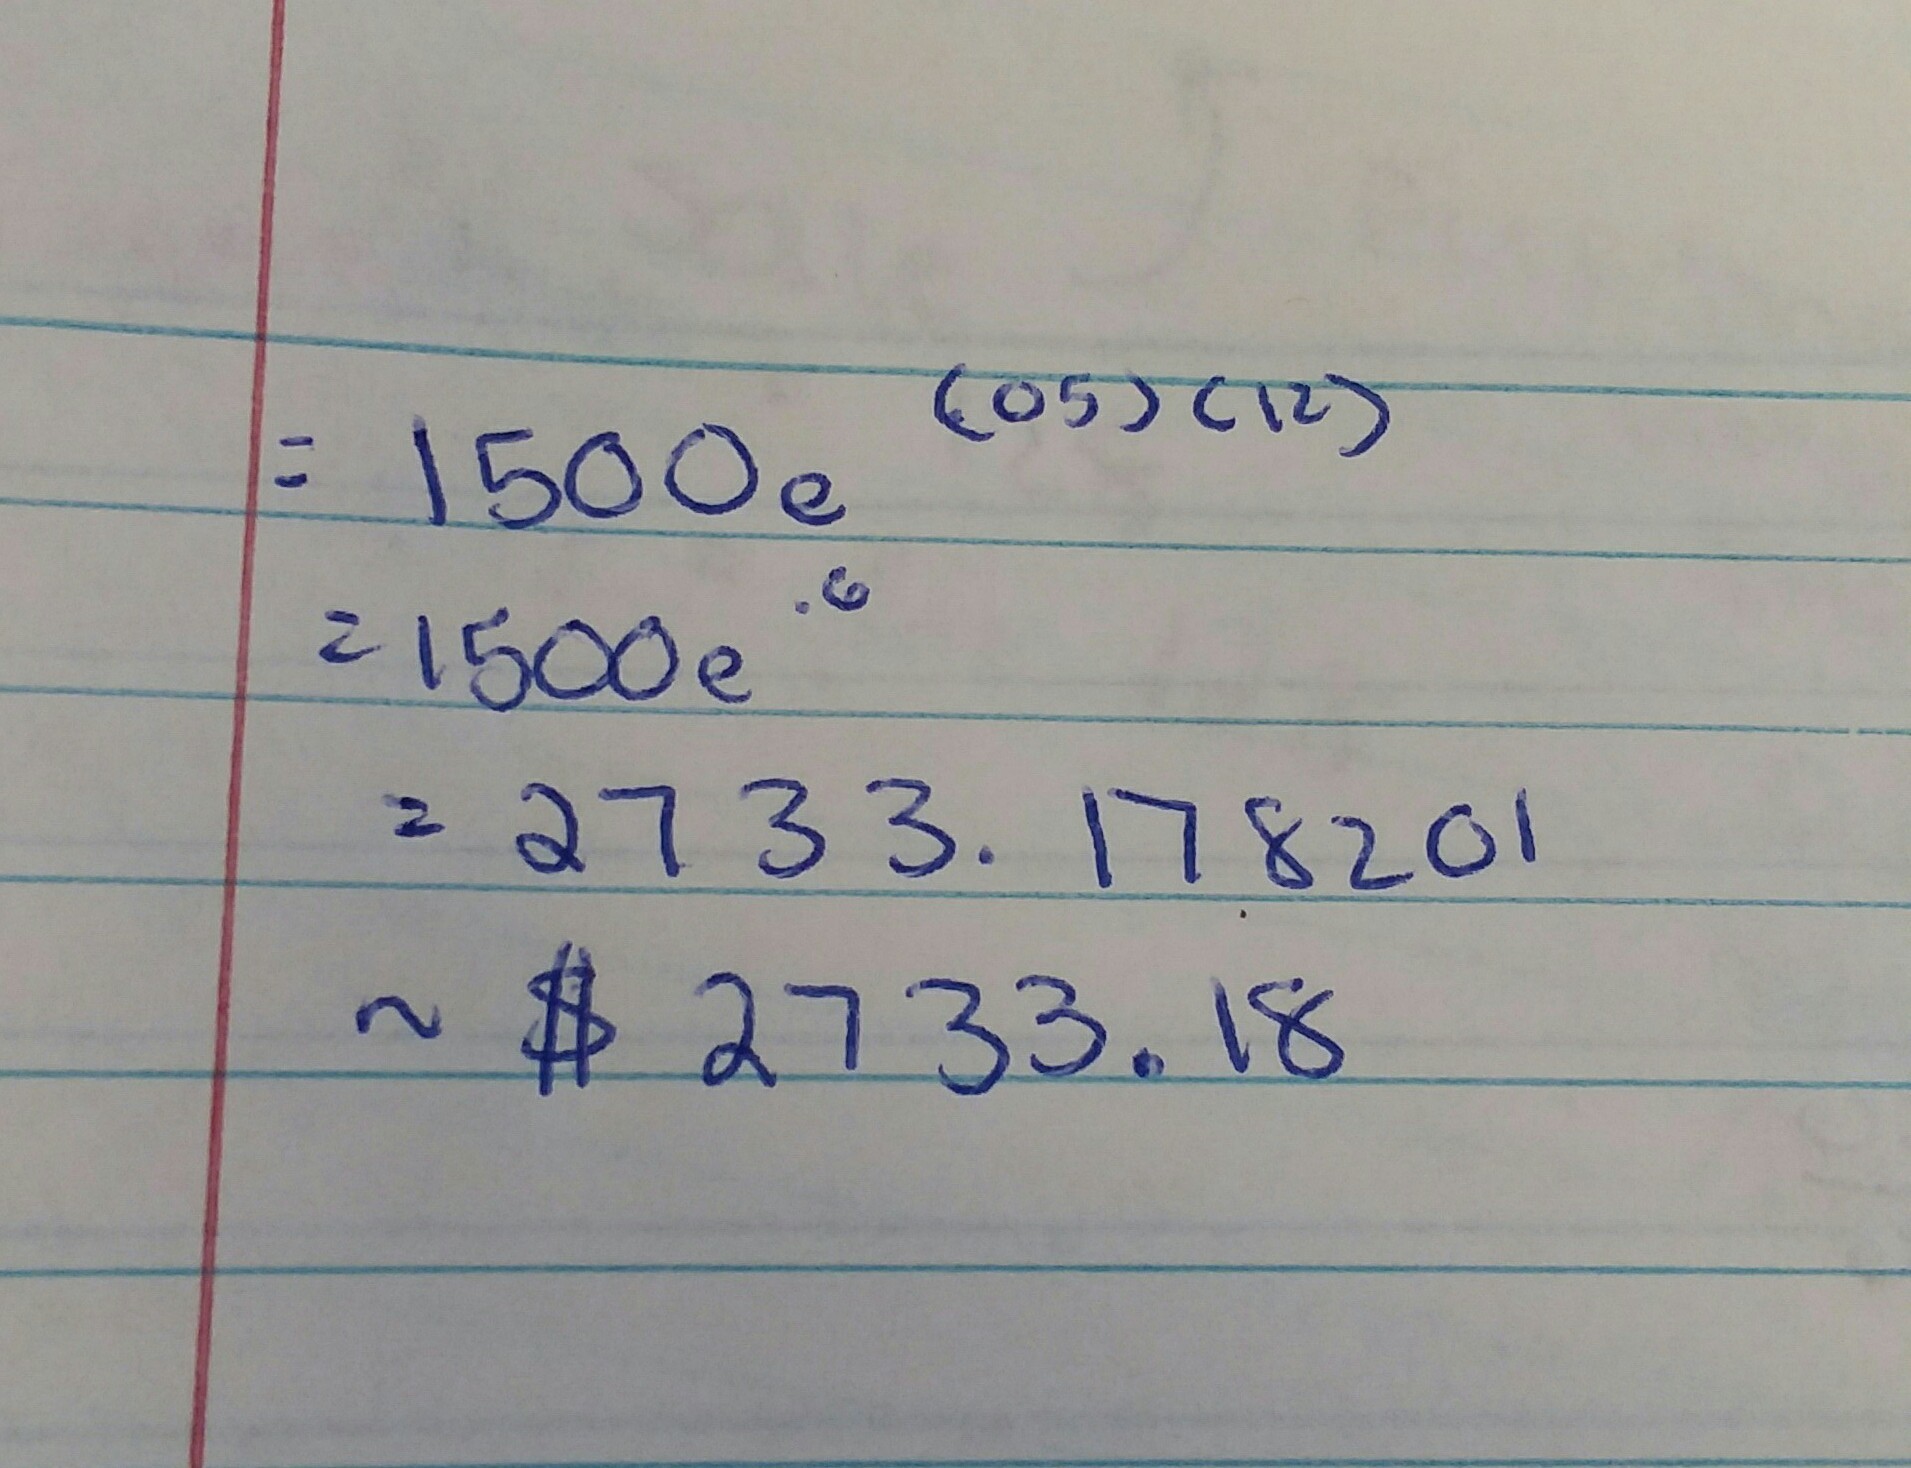 = 1500e^(.05)(12)
= 1500e^.6
= 2733.178201
~ $ 2733.18